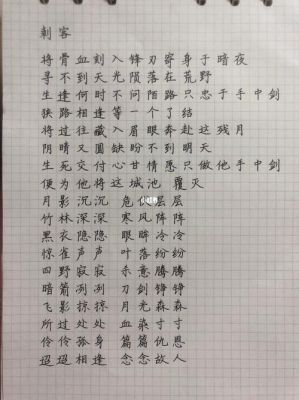 刺客
将骨血刻入锋刃寄身于暗夜
寻不到天光陨落在荒野
生逢何时不问陌路只忠于手中剑
狭路相逢等一个了结
将过往藏入眉眼奔赴这残月
阴晴又圆缺盼不到明天
生死交付心甘情愿只做他手中剑
便为他将这城池 覆灭
月影沉沉 危伏层层
竹林深深 寒风阵阵
黑衣隐隐 眼眸冷冷
惊雀声声 叶落纷纷
四野寂寂 杀意腾腾
暗箭冽冽 刀剑铮铮
飞影掠掠 月光森森
所过处处 血染寸寸
伶伶孤身 篇篇仇恨
迢迢相逢 念念故人